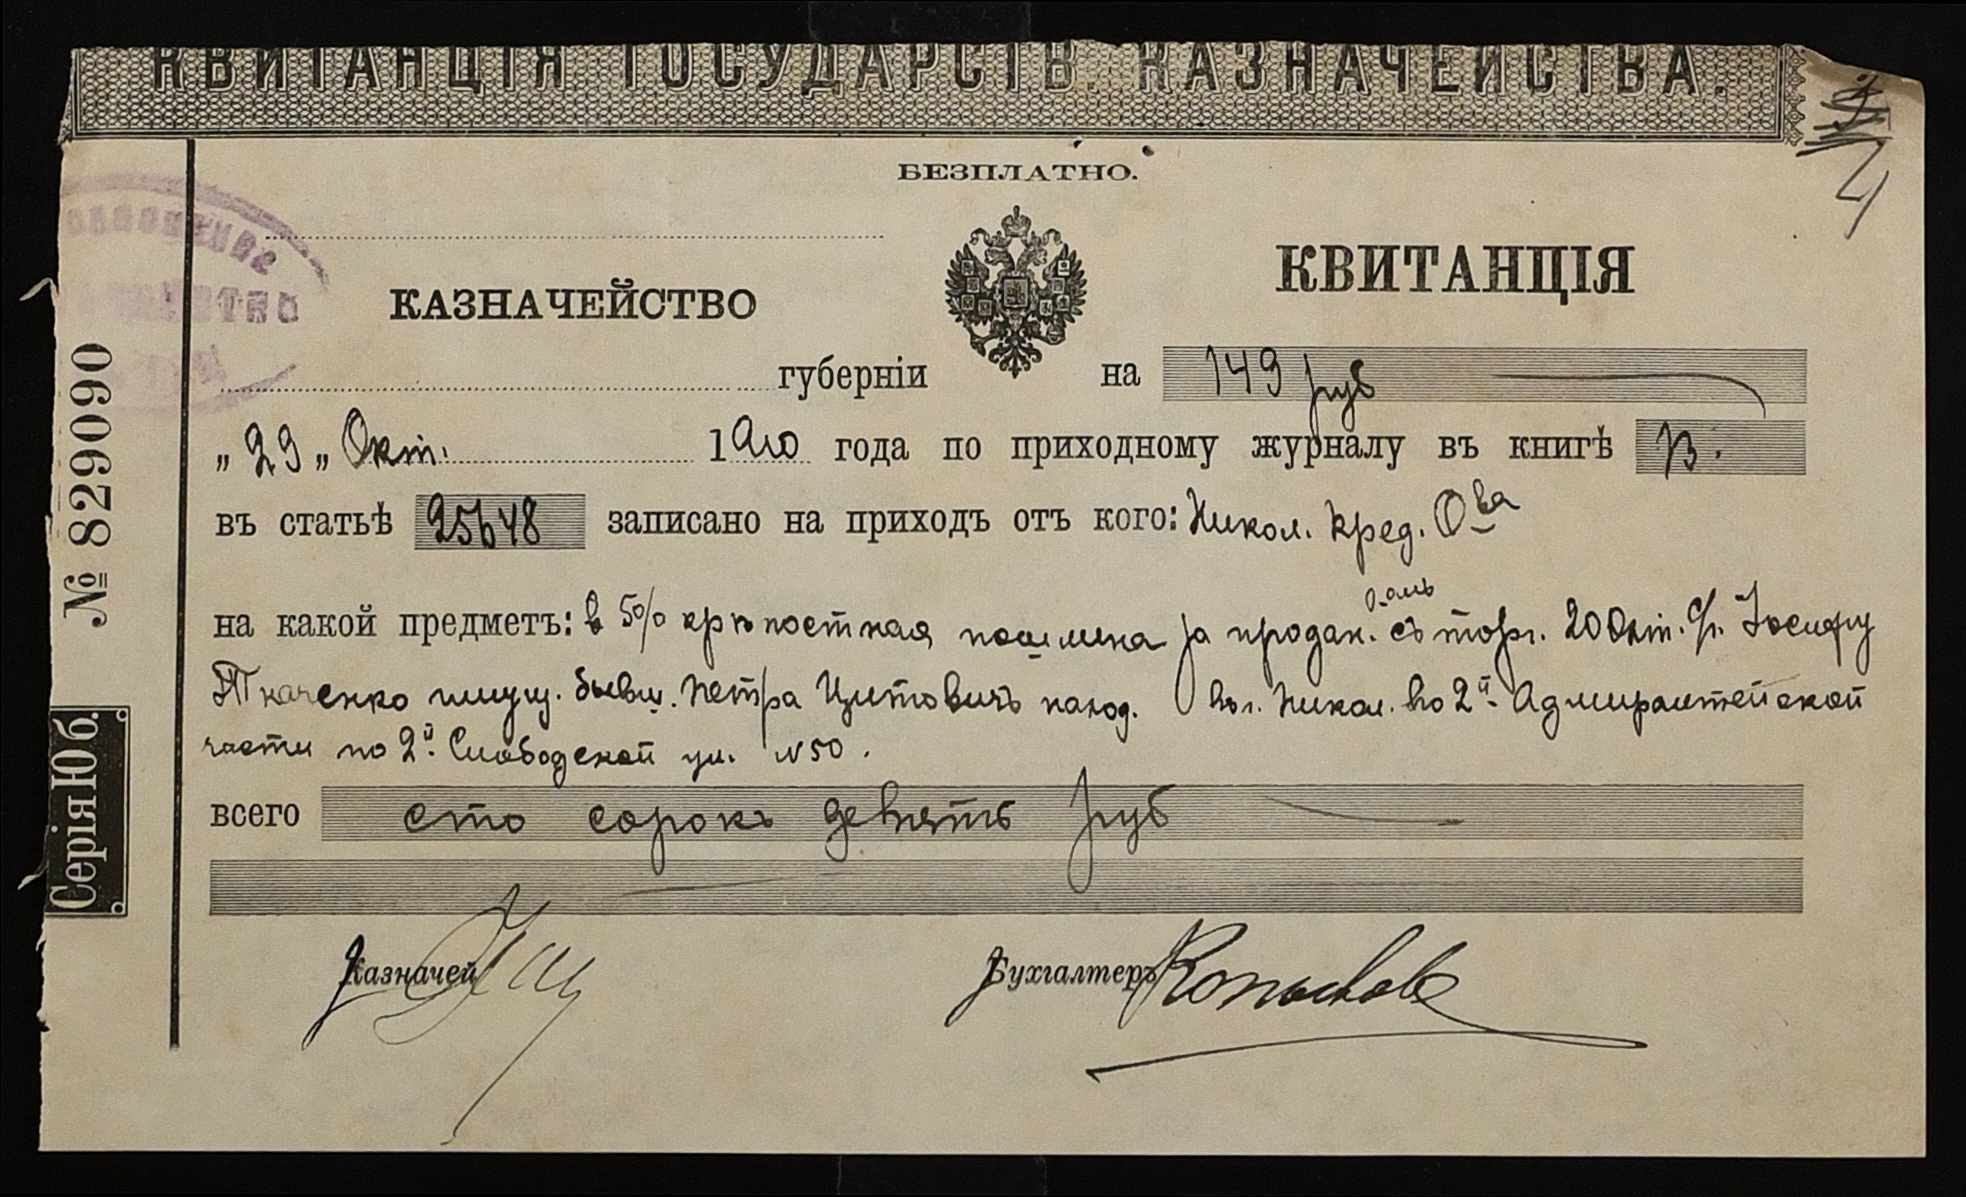 КВИТАНЦІЯ ГОСУДАРСТВ. КАЗНАЧЕЙСТВА.
4
БЕЗПЛАТНО.
КАЗНАЧЕЙСТВО
КВИТАНЦІЯ
губерніи на 149 руб
"29" Окт. 1910 года по приходному журналу въ книгѣ
въ статьѣ 25648 записано на приходъ отъ кого: Никол. Кред. О-ва
на какой предметъ: в 5% крѣпостная пошлина за продан. съ торг. 20 Окт. с/г. Іосифу
Ткаченко имущ. бывш. Петра Цитовичъ наход. въ г. Никол. во 2й Адмиралтейской
части по 2й Слободской ул. N 50.
всего сто сорокъ девять руб
Казначей
Бухгалтеръ
№ 829090
Серія Юб.